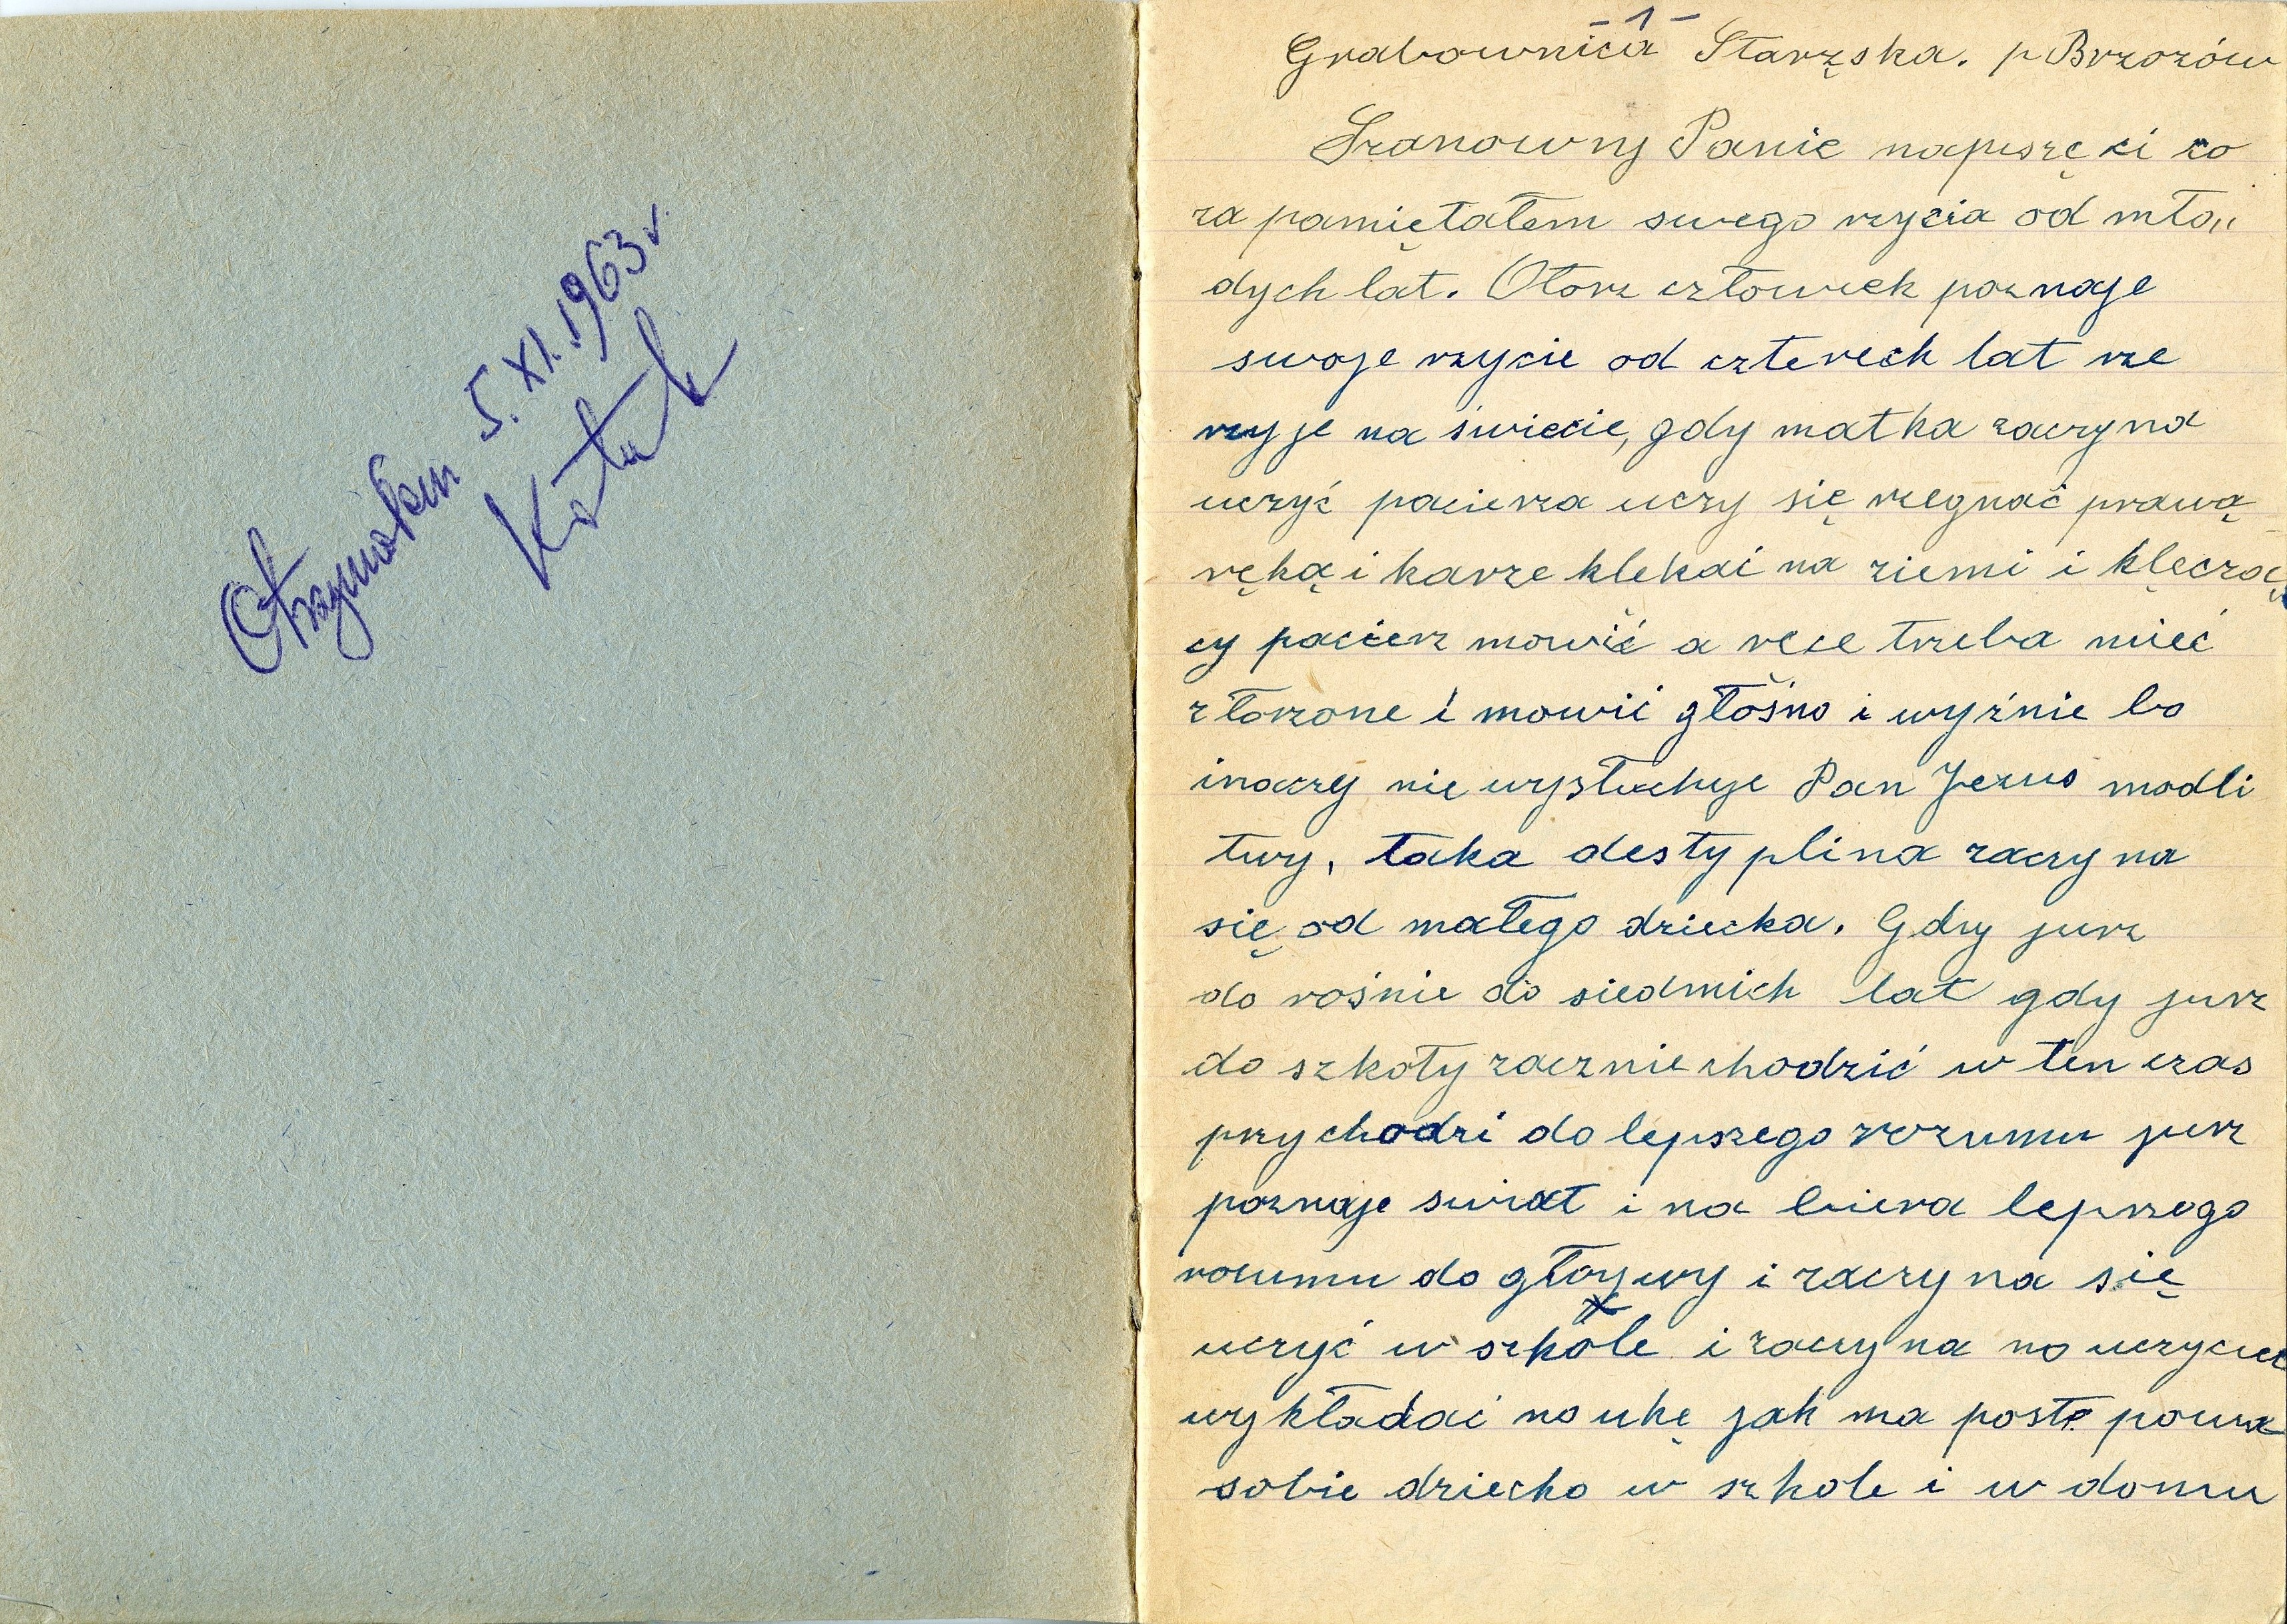 Otrzymałem 5.XI.1963 r.
– 1 –
Grabownica Starzska. p Brzozów
Szanowny Panie napiszę ci co
za pamiętałem swego rzycia od mło„
dych lat. Otorz człowiek poznaje
swoje rzycie od czterech lat rze
rzyje na świecie, gdy matka zaczyna
uczyć pacierza uczy się rzegnać prawą
ręką i karze klękać na ziemi i klęcząc„
cy pacierz mowić a ręce trzeba mieć
złorzone i mowić głośno i wyźnie bo
inaczy nie wysłuchuje Pan Jezus modli
twy, taka destyplina zaczyna
się od małego dziecka. Gdy jurz
do rośnie do siedmich lat gdy jurz
do szkoły zacznie chodzić w ten czas
przychodzi do lepszego rozumu jurz
poznaje swiat i na biera leprzego
rozumu do głowy i zaczyna się
uczyć w szkole i zaczyna na uczyciel
wykładać na ukę jak ma postę powa
sobie dziecko w szkole i w domu